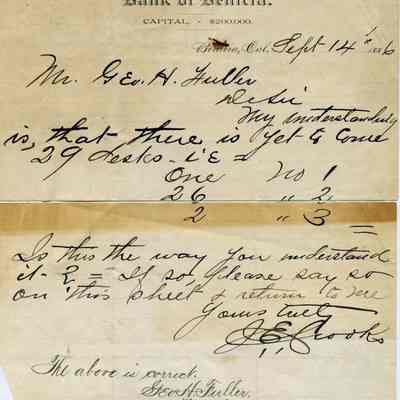 Bank of Benicia.
CAPITAL, - $200,000.
Benicia, Cal, Sept 14th 1886
Mr. Geo. H. Fuller
D Sir
My understanding
is, that there is yet to come
29 desks - i.e =
One No 1
26 " 2
2 " 3
Is this the way you understand
it - ? = If so, please say so
on this sheet & return to me
Yours truly
J.E. Crooks
The above is correct.
Geo H. Fuller.